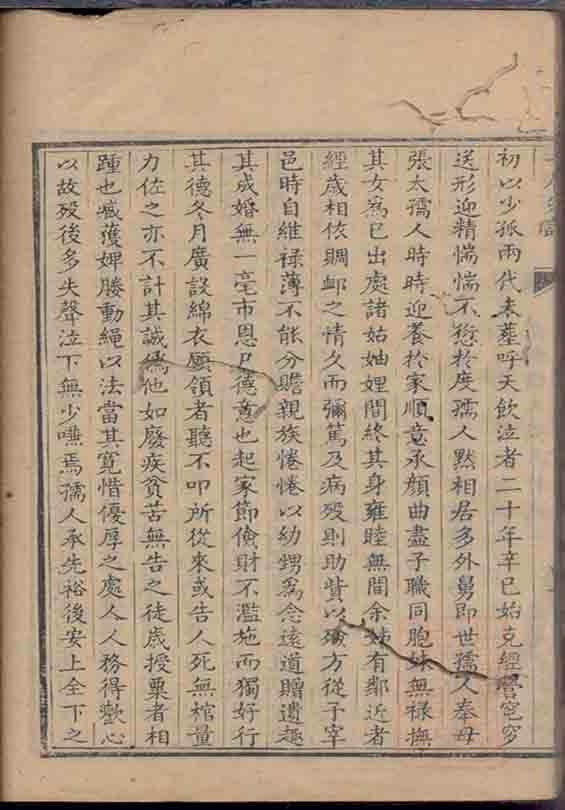 初以少孤兩代未葬呼天飲泣者二十年辛巳始克經營窀穸
送形迎精惴惴不愆於度孺人默相居多外舅即世孺人奉母
張太孺人時時迎養於家順意承顏曲盡子職同胞妹無祿撫
其女為己出處諸姑妯娌間終其身雍睦無間余姊有鄰近者
經歲相依賙卹之情久而彌篤及病歿則助貲以殮方從子宰
邑時自維祿薄不能分贍親族惓惓以幼甥為念遠道贈遺趣
其成婚無一毫市恩尸德意也起家節儉財不濫施而獨好行
其德冬月廣設綿衣願領者聽不叩所從來或告人死無棺量
力佐之亦不計其誠偽他如廢疾貧苦無告之徒歲授粟者相
踵也臧獲婢媵動繩以法當其寬惜優厚之處人人務得歡心
以故歿後多失聲泣下無少嘩焉孺人承先裕後安上全下之